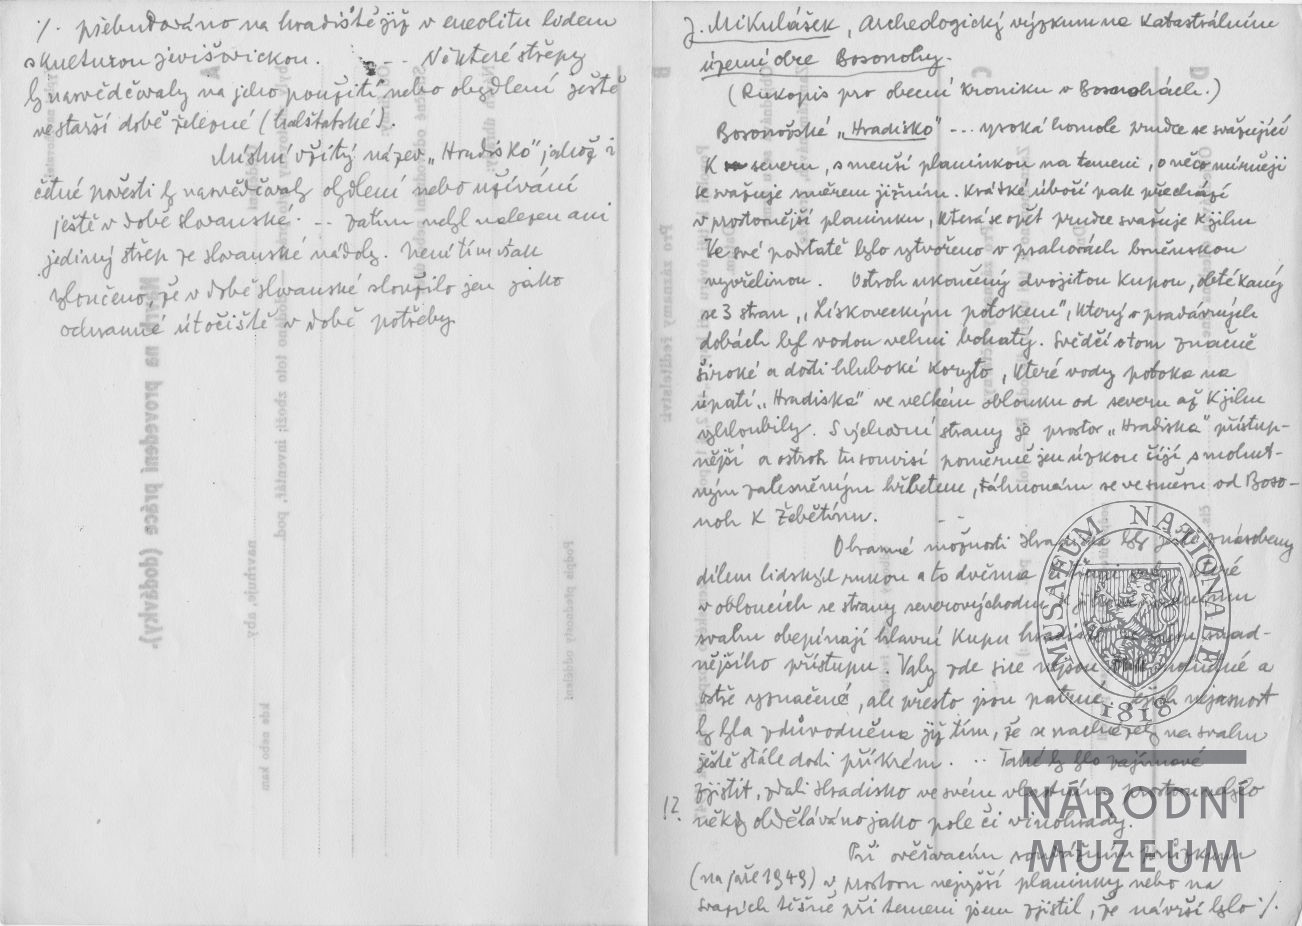 J. Mikulášek, Archeologický výzkum na katastrálním
území obce Bosonohy.
(Rukopis pro obecní kroniku v Bosonohách.)
Bosonožské „Hradisko" --- vysoká homole prudce se svažující
K severu, s menší planinkou na temeni, o něco mírněji
se svažuje směrem jižním. Krátké úbočí pak přechází
v prostornější planinku, která se opět prudce svažuje K jihu
Ve své podstatě bylo vytvořeno v prahorách brněnskou
vyvřelinou. Ostroh ukončený dvojitou Kupou, obtékaný
se 3 stran „Lískoveckým potokem", Který v pradávných
dobách byl vodou velmi bohatý. Svědčí o tom značně
široké a dosti hluboké koryto, Které vody potoka na
úpatí „Hradiska" ve velkém oblouku od severu až K jihu
vyhloubily. S východní strany je prostor „Hradiska" přístup-
nější a ostroh tu souvisí poměrně jen úzkou šíjí s mohut-
ným zalesněným hřbetem, táhnoucím se ve směru od Boso-
noh K Žebětínu. - -
Obranné možnosti Hradiska byly ještě znásobeny
dílem lidských rukou a to dvěma
v obloucích se strany severovýchodní
svahu obepínají hlavní Kupu snad-
nějšího přístupu. Valy zde sice nejsou a
ostře vyznačené, ale přesto jsou patrné. Jejich nejasnost
by byla zdůvodněna již tím, že se nacházely na svahu
ještě stále dosti příkrém. -- Také by bylo zajímavé
zjistit, zdali Hradisko ve svém vlastním prostoru nebylo
!?. někdy obděláváno jako pole či vinohrady.
Při ověřovacím povrchním průzkumu
(na jaře 1949) v prostoru nejvyšší planinky nebo na
svazích těsně při temeni jsem zjistil, že návrší bylo ·/.
·/. přebudováno na hradiště již v eneolitu lidem
s Kulturou jevišovickou. --- Některé střepy
by nasvědčovaly na jeho použití nebo obydlení ještě
ve starší době železné (halštatské).
Místní vžitý název „Hradisko" jakož i
četné pověsti by nasvědčovaly obydlení nebo užívání
ještě v době slovanské. -- zatím nebyl nalezen ani
jediný střep ze slovanské nádoby. Není tím však
vyloučeno, že v době slovanské sloužilo jen jako
ochranné útočiště v době potřeby
MUSAEUM NATIONALE
1818
NÁRODNÍ
MUZEUM